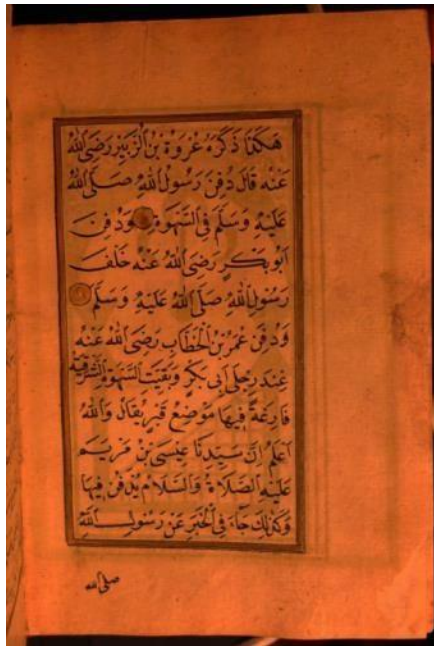 هَكَذَا ذَكَرَهُ عُرْوَةُ بْنُ الزُّبَيْرِ رَضِيَ اللهُ
عَنْهُ قَالَ دُفِنَ رَسُولُ اللهِ صَلَّى اللهُ
عَلَيْهِ وَسَلَّمَ فِي السَّهْوَةِ وَدُفِنَ
اَبُو بَكْرٍ رَضِيَ اللهُ عَنْهُ خَلْفَ
رَسُولِ اللهِ صَلَّى اللهُ عَلَيْهِ وَسَلَّمَ
وَدُفِنَ عُمَرُ بْنُ الْخَطَّابِ رَضِيَ اللهُ عَنْهُ
عِنْدَ رِجْلَىْ اَبِى بَكْرٍ وَبَقِيَتِ السَّهْوَةُ الشَّرْقِيَّةُ
فَارِغَةً فِيهَا مَوْضِعُ قَبْرٍ يُقَالُ وَاللهُ
اَعْلَمُ اِنَّ سَيِّدَنَا عِيسَى بْنَ مَرْيَمَ
عَلَيْهِ الصَّلَاةُ وَالسَّلَامُ يُدْفَنُ فِيهَا
وَكَذَلِكَ جَاءَ فِي الْخَبَرِ عَنْ رَسُولِ اللهِ
صلى الله